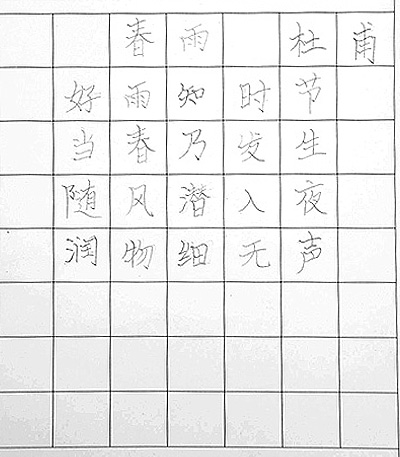 春雨 杜甫
好雨知时节
当春乃发生
随风潜入夜
润物细无声